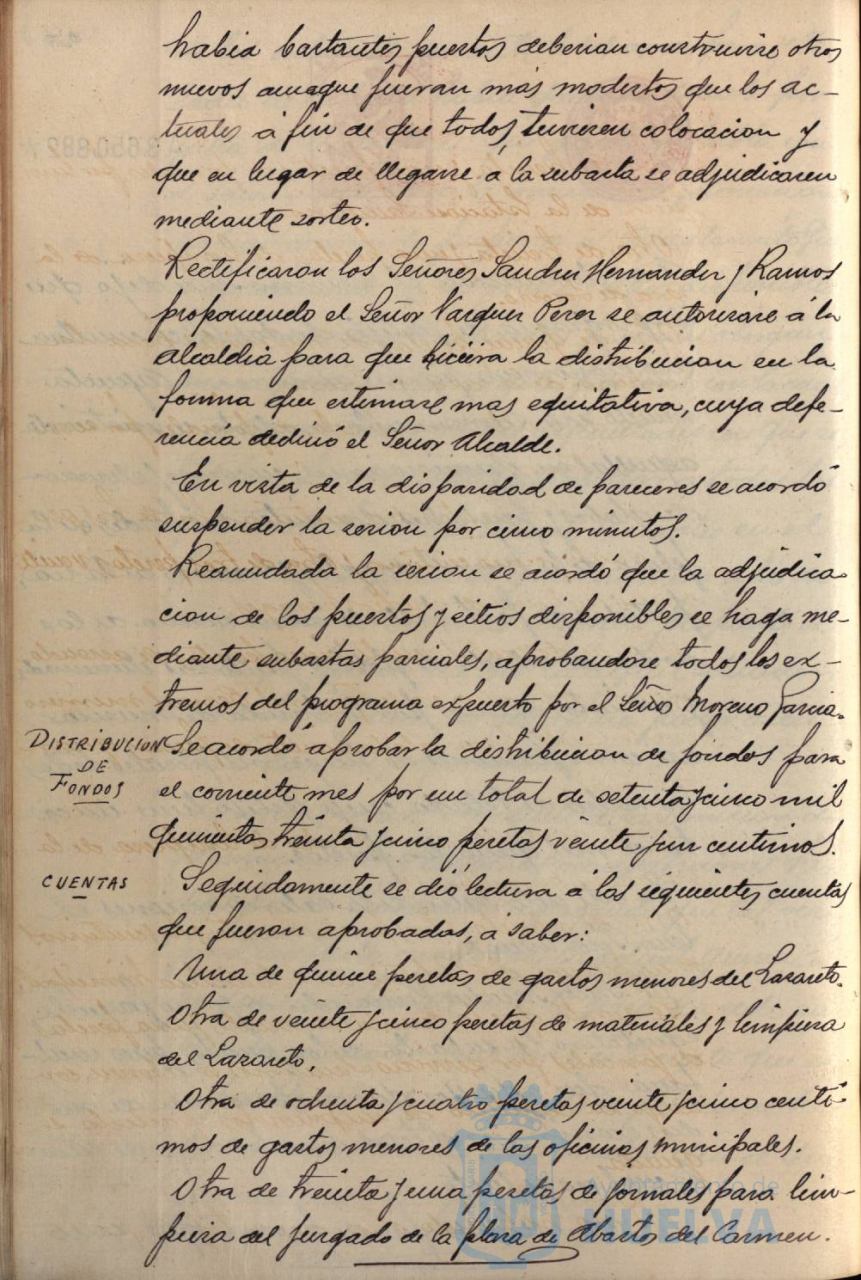 habia bastantes puestos deberian construirse otros
nuevos aunque fueran mas modestos que los ac-
tuales á fin de que todos tuvieren colocacion y
que en lugar de llegarse á la subasta se adjudicaren
mediante sorteo.
Rectificaron los Señores Sanchez Hernandez y Ramos
proponiendo el Señor Vazquez Perez se autorizare á la
alcaldia para que hiciera la distribucion en la
forma que estimare mas equitativa, cuya defe-
rencia declinó el Señor Alcalde.
En vista de la disparidad de pareceres se acordó
suspender la sesion por cinco minutos.
Reanudada la sesion se acordó que la adjudica-
cion de los puestos y sitios disponibles se haga me-
diante subastas parciales, aprobandose todos los ex-
tremos del programa expuesto por el Señor Moreno Garcia.
DISTRIBUCION
DE
FONDOS
Se acordó aprobar la distribucion de fondos para
el corriente mes por un total de setenta y cinco mil
quinientas treinta y cinco pesetas veinte y un centimos.
CUENTAS
Seguidamente se dió lectura á las siguientes cuentas
que fueron aprobadas, á saber:
Una de quince pesetas de gastos menores del Lazareto.
Otra de veinte y cinco pesetas de materiales y limpieza
del Lazareto.
Otra de ochenta y cuatro pesetas veinte y cinco centi-
mos de gastos menores de las oficinas municipales.
Otra de treinta y una pesetas de jornales para lim-
pieza del juzgado de la plaza de Abastos del Carmen.
Ayuntamiento de
HUELVA